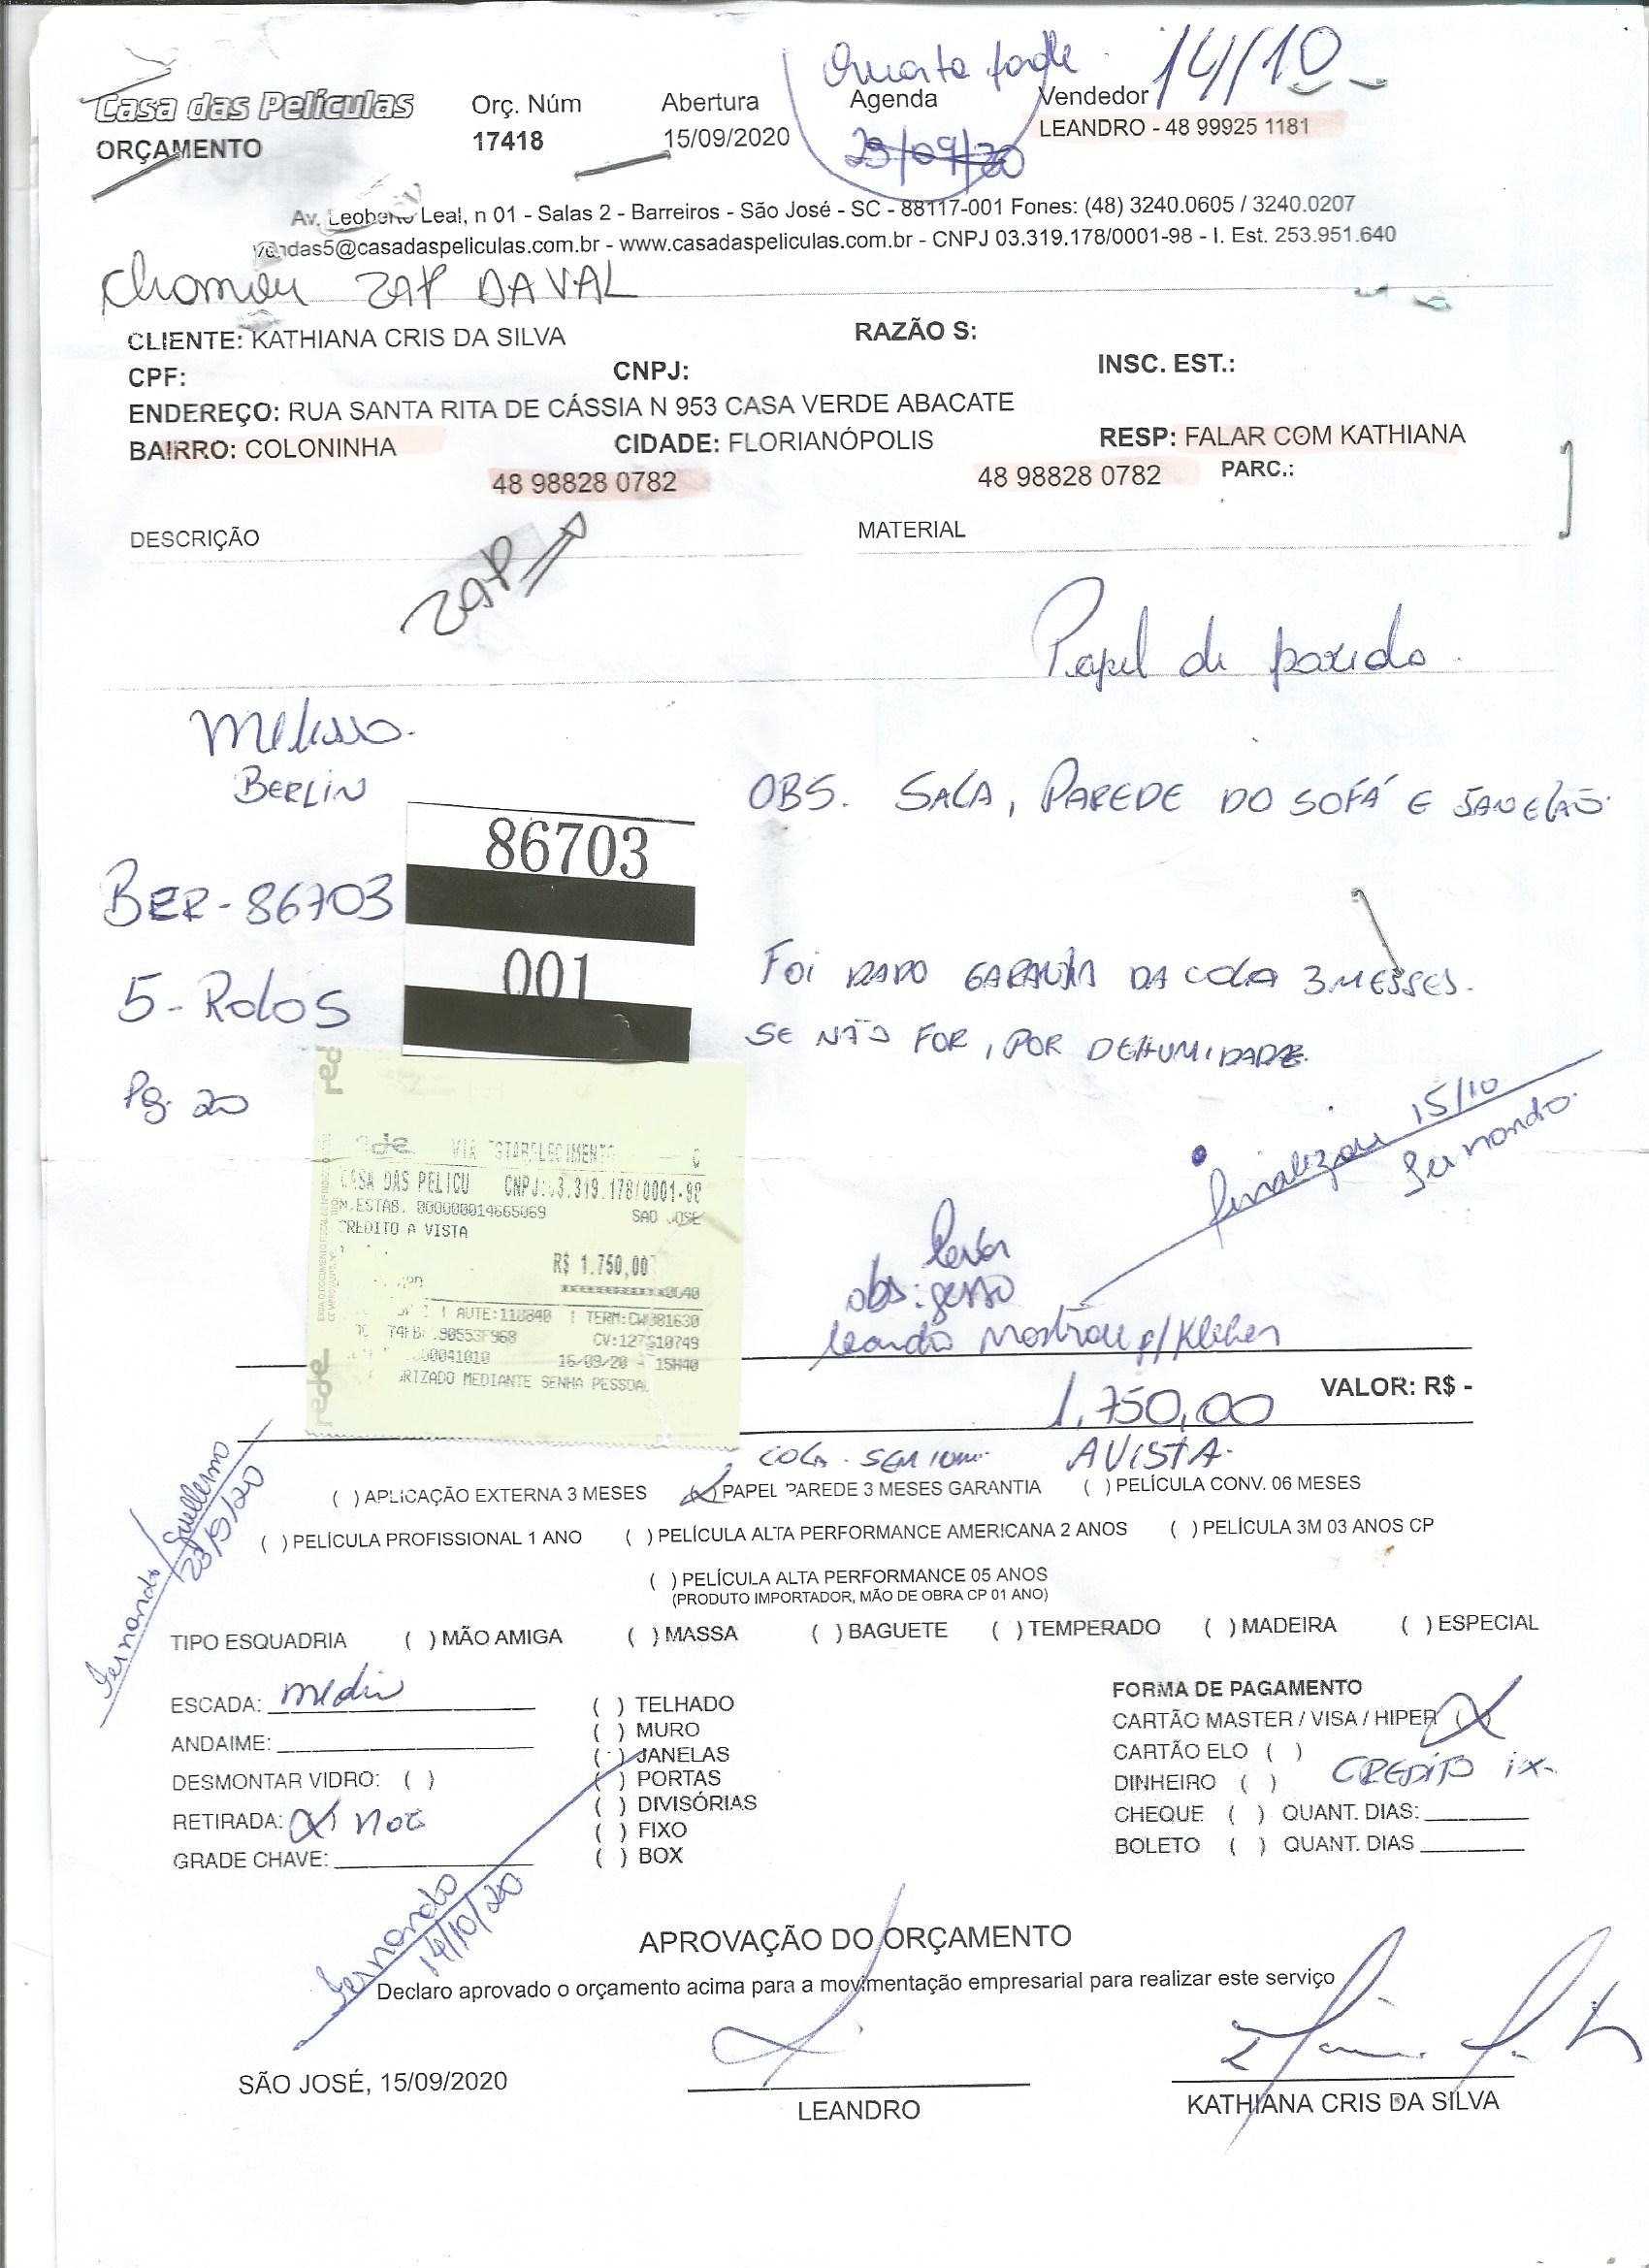 Quarta tarde 14/10
Casa das Películas Orç. Núm Abertura Agenda Vendedor
ORÇAMENTO 17418 15/09/2020 23/09/20 LEANDRO - 48 99925 1181
Av. Leoberto Leal, n 01 - Salas 2 - Barreiros - São José - SC - 88117-001 Fones: (48) 3240.0605 / 3240.0207
vendas5@casadaspeliculas.com.br - www.casadaspeliculas.com.br - CNPJ 03.319.178/0001-98 - I. Est. 253.951.640
Chamou ZAP DAVAL
CLIENTE: KATHIANA CRIS DA SILVA RAZÃO S:
CPF: CNPJ: INSC. EST.:
ENDEREÇO: RUA SANTA RITA DE CÁSSIA N 953 CASA VERDE ABACATE
BAIRRO: COLONINHA CIDADE: FLORIANÓPOLIS RESP: FALAR COM KATHIANA
48 98828 0782 48 98828 0782 PARC.:
DESCRIÇÃO MATERIAL
ZAP
Papel de parede
BERLIN
OBS. SALA, PAREDE DO SOFÁ E JANELÃO
86703
BER-86703
001
5-Rolos
FOI DADO GARANTIA DA COLA 3 MESSES.
SE NÃO FOR, POR DEHUMIDADE.
Pg. 20
finalizou 15/10
Fernando.
VIA ESTABELECIMENTO
CASA DAS PELICU CNPJ:03.319.178/0001-98
N.ESTAB. 000000014665069 SAO JOSE
CREDITO A VISTA
R$ 1.750,00
AUTE:110840 TERM:CW381630
CV:127610749
16/09/20 - 15H40
RIZADO MEDIANTE SENHA PESSOAL
rede
obs: gesso
Leandro Mostrou p/Kleber
1.750,00 VALOR: R$ -
COLA - SEM AVISTA
( ) APLICAÇÃO EXTERNA 3 MESES (X) PAPEL PAREDE 3 MESES GARANTIA ( ) PELÍCULA CONV. 06 MESES
( ) PELÍCULA PROFISSIONAL 1 ANO ( ) PELÍCULA ALTA PERFORMANCE AMERICANA 2 ANOS ( ) PELÍCULA 3M 03 ANOS CP
( ) PELÍCULA ALTA PERFORMANCE 05 ANOS
(PRODUTO IMPORTADOR, MÃO DE OBRA CP 01 ANO)
Fernando/Guillermo
TIPO ESQUADRIA ( ) MÃO AMIGA ( ) MASSA ( ) BAGUETE ( ) TEMPERADO ( ) MADEIRA ( ) ESPECIAL
ESCADA: media
ANDAIME:
DESMONTAR VIDRO: ( )
RETIRADA: (X) não
GRADE CHAVE:
( ) TELHADO
( ) MURO
( ) JANELAS
( ) PORTAS
( ) DIVISÓRIAS
( ) FIXO
( ) BOX
FORMA DE PAGAMENTO
CARTÃO MASTER / VISA / HIPER (X)
CARTÃO ELO ( )
DINHEIRO ( ) CREDITO 1X
CHEQUE ( ) QUANT. DIAS:
BOLETO ( ) QUANT. DIAS
Fernando
14/10/20
APROVAÇÃO DO ORÇAMENTO
Declaro aprovado o orçamento acima para a movimentação empresarial para realizar este serviço
SÃO JOSÉ, 15/09/2020
LEANDRO
KATHIANA CRIS DA SILVA